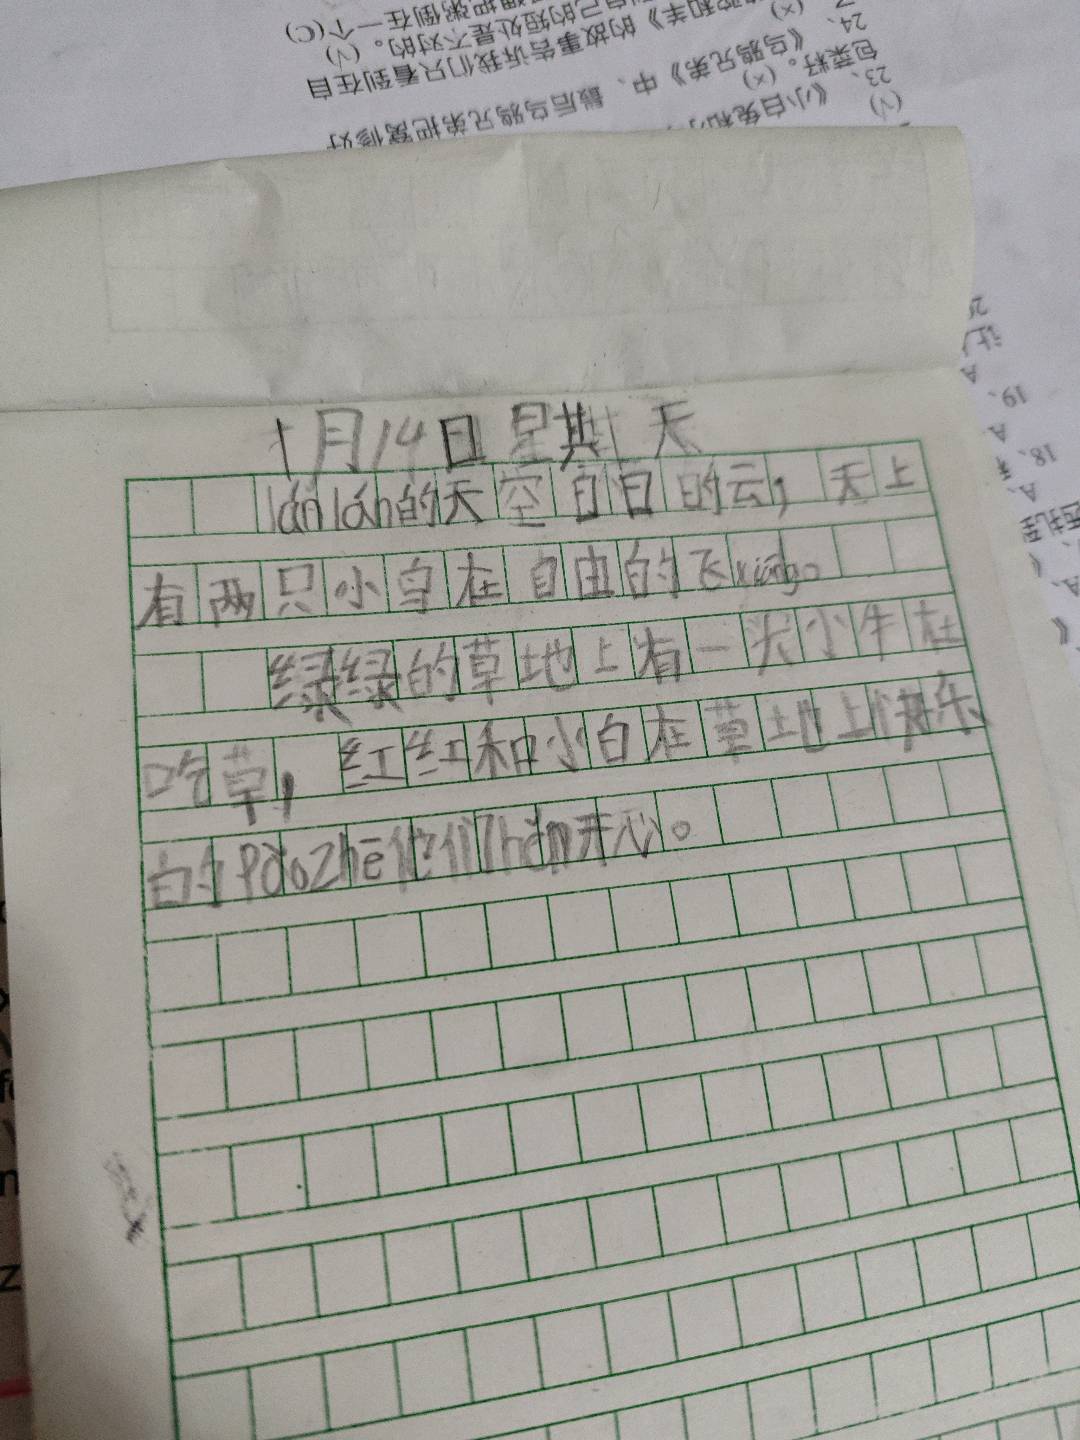 个(C)
的短处是不对的。(√)
的故事告诉我们只看到在自
24、
包菜籽。(×)
《乌鸦兄弟》中，最后乌鸦兄弟把窝修好
23、
(√)
19、
18、
1月14日 星期天
lán lán的天空白白的云，天上
有两只小鸟在自由的飞xiáng。
绿绿的草地上有一头小牛在
吃草，红红和小白在草地上快乐
的pǎo zhē他们hěn开心。